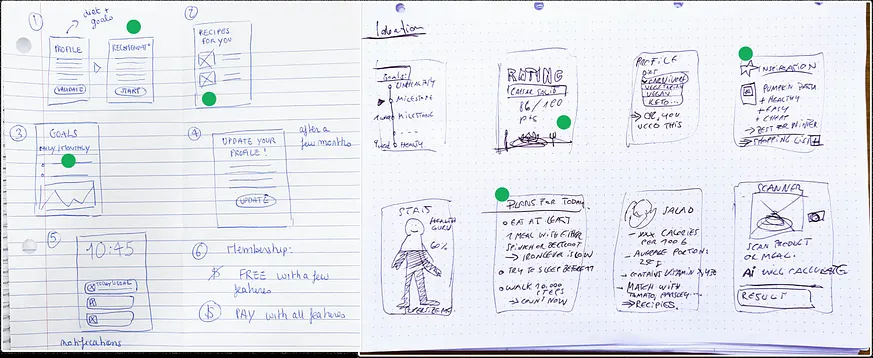 ①
diet +
goals
PROFILE
VALIDATE
START
②
RECIPES
FOR YOU
③
GOALS
DAILY/MONTHLY
④
UPDATE YOUR
PROFILE!
UPDATE
after a
few months
⑤
10:45
notifications
⑥ Membership:
$ FREE with a few
features
$ PAY with all features
Ideation
Goals:
UNHEALTHY
MILESTONE
MILESTONE
HEALTHY
RATING
CAESAR SALAD
86/100
PTS
PROFILE
CARNIVORE
VEGETARIAN
VEGAN
KETO...
→ OK, YOU
NEED THIS
INSPIRATION
PUMPKIN PASTA
+ HEALTHY
+ EASY
+ CHEAP
→ BEST FOR WINTER
→ SHOPPING LIST +
STATS
HEALTH
GURU
60%
PLANS FOR TODAY
EAT AT LEAST
1 MEAL WITH EITHER
SPINACH OR BEETROOT
→ IRON LEVEL IS LOW
TRY TO SLEEP BEFORE 11
WALK 10.000
STEPS
→ COUNT NOW
SALAD
- MAX CALORIES
PER 100 G
- AVERAGE PORTION:
- CONTAINS VITAMIN
- MATCH WITH
TOMATO, PARSLEY...
→ RECIPES.
SCANNER
SCAN PRODUCT
OR MEAL.
AI WILL CALCULATE
RESULT